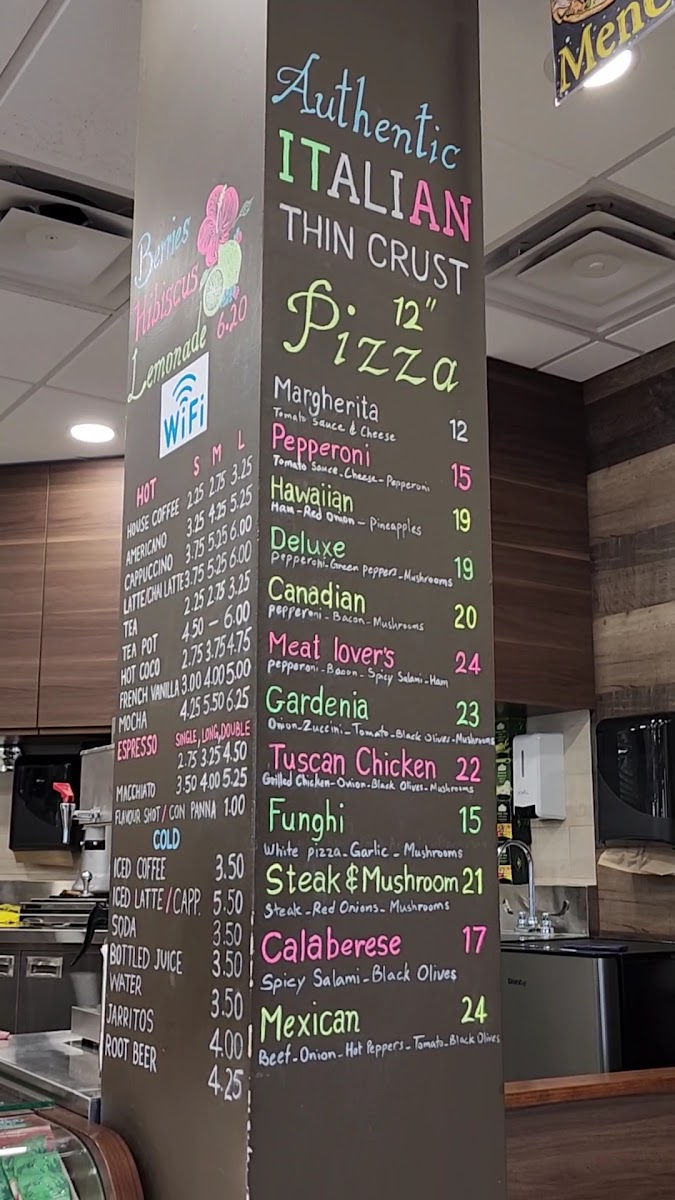 Mene
Berries
Hibiscus
Lemonade 6.20
WiFi
HOT S M L
HOUSE COFFEE 2.25 2.75 3.25
AMERICANO 3.25 4.25 5.25
CAPPUCCINO 3.75 5.25 6.00
LATTE/CHAI LATTE 3.75 5.25 6.00
TEA 2.25 2.75 3.25
TEA POT 4.50 - 6.00
HOT COCO 2.75 3.75 4.75
FRENCH VANILLA 3.00 4.00 5.00
MOCHA 4.25 5.50 6.25
ESPRESSO SINGLE, LONG, DOUBLE
2.75 3.25 4.50
MACCHIATO 3.50 4.00 5.25
FLAVOUR SHOT / CON PANNA 1.00
COLD
ICED COFFEE 3.50
ICED LATTE / CAPP. 5.50
SODA 3.50
BOTTLED JUICE 3.50
WATER 3.50
JARRITOS 4.00
ROOT BEER 4.25
Authentic
ITALIAN
THIN CRUST
12"
Pizza
Margherita 12
Tomato Sauce & Cheese
Pepperoni 15
Tomato Sauce-Cheese-Pepperoni
Hawaiian 19
Ham-Red Onion-Pineapples
Deluxe 19
Pepperoni-Green peppers-Mushrooms
Canadian 20
pepperoni-Bacon-Mushrooms
Meat lover's 24
pepperoni-Bacon-Spicy Salami-Ham
Gardenia 23
Onion-Zuccini-Tomato-Black Olives-Mushrooms
Tuscan Chicken 22
Grilled Chicken-Onion-Black Olives-Mushrooms
Funghi 15
White pizza-Garlic-Mushrooms
Steak & Mushroom 21
Steak-Red Onions-Mushrooms
Calaberese 17
Spicy Salami-Black Olives
Mexican 24
Beef-Onion-Hot Peppers-Tomato-Black Olives